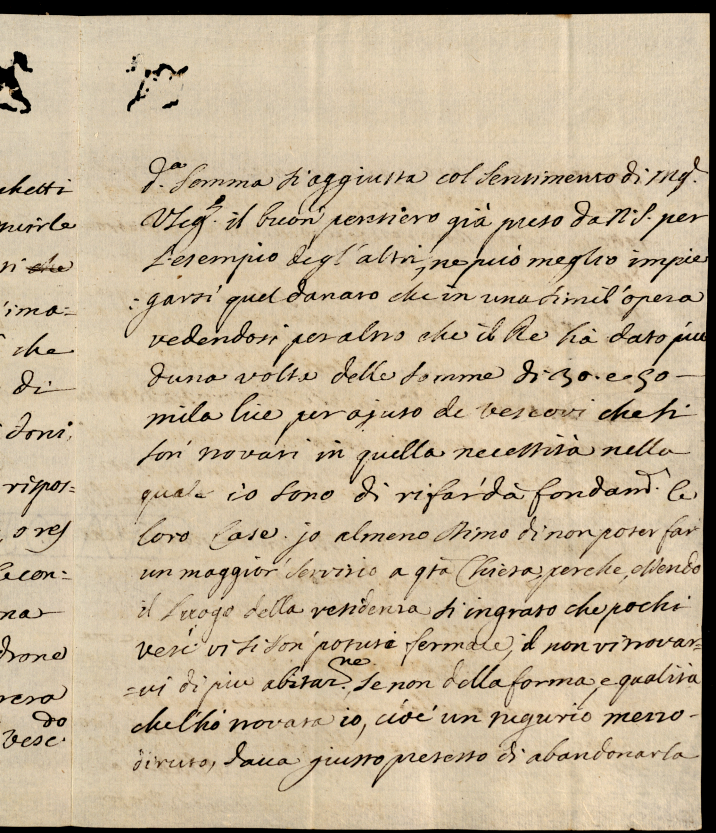 chetti
ri che
ima=
che
di
doni,
rispos=
, o res
con=
na
drone
do
Vesc.
d.ª Somma s'aggiusta col Sentimento di Mg.r
il buon pensiero già preso da N.S. per
L'esempio degl'altri, ne può meglio impie
=garsi quel danaro che in una simil'opera
vedendosi per altro che il Re hà dato più
d'una volta delle Somme di 30. e 50
mila lire per ajuto de Vescovi che si
son' trovati in quella necessità nella
quale io sono di rifar dà fondam.ti le
loro Case. jo almeno stimo di non poter far
un maggior' Servizio a q.ta Chiesa, perche, essendo
il Luogo della residenza si ingrato che pochi
Vesc.i vi si son' potuti fermare, il non vi trovar=
=vi di più abitaz.ne se non della forma, e qualità
che l'hò trovata io, cioè un tugurio mezzo
diruto, dava giusto pretesto di abandonarla